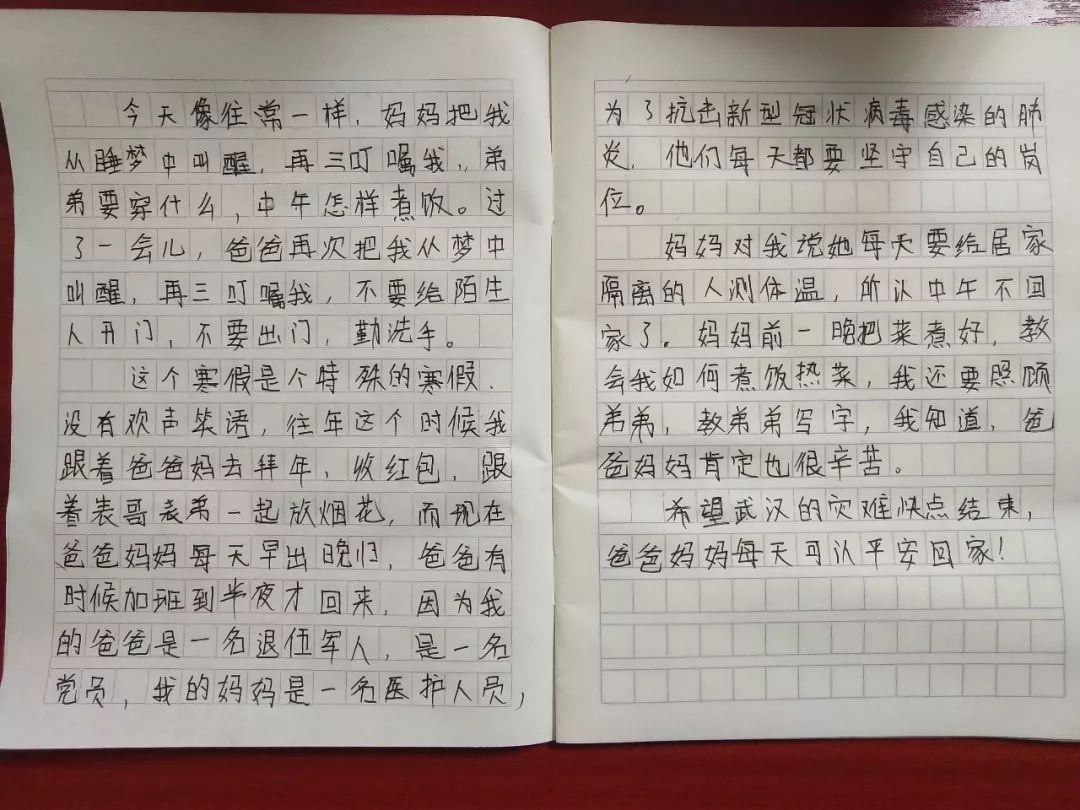 今天像往常一样，妈妈把我
从睡梦中叫醒，再三叮嘱我，弟
弟要穿什么，中午怎样煮饭。过
了一会儿，爸爸再次把我从梦中
叫醒，再三叮嘱我，不要给陌生
人开门，不要出门，勤洗手。
这个寒假是个特殊的寒假，
没有欢声笑语，往年这个时候我
跟着爸爸妈去拜年，收红包，跟
着表哥表弟一起放烟花，而现在
爸爸妈妈每天早出晚归，爸爸有
时候加班到半夜才回来，因为我
的爸爸是一名退伍军人，是一名
党员，我的妈妈是一名医护人员，
为了抗击新型冠状病毒感染的肺
炎，他们每天都要坚守自己的岗
位。
妈妈对我说她每天要给居家
隔离的人测体温，所以中午不回
家了。妈妈前一晚把菜煮好，教
会我如何煮饭热菜，我还要照顾
弟弟，教弟弟写字，我知道，爸
爸妈妈肯定也很辛苦。
希望武汉的灾难快点结束，
爸爸妈妈每天可以平安回家！